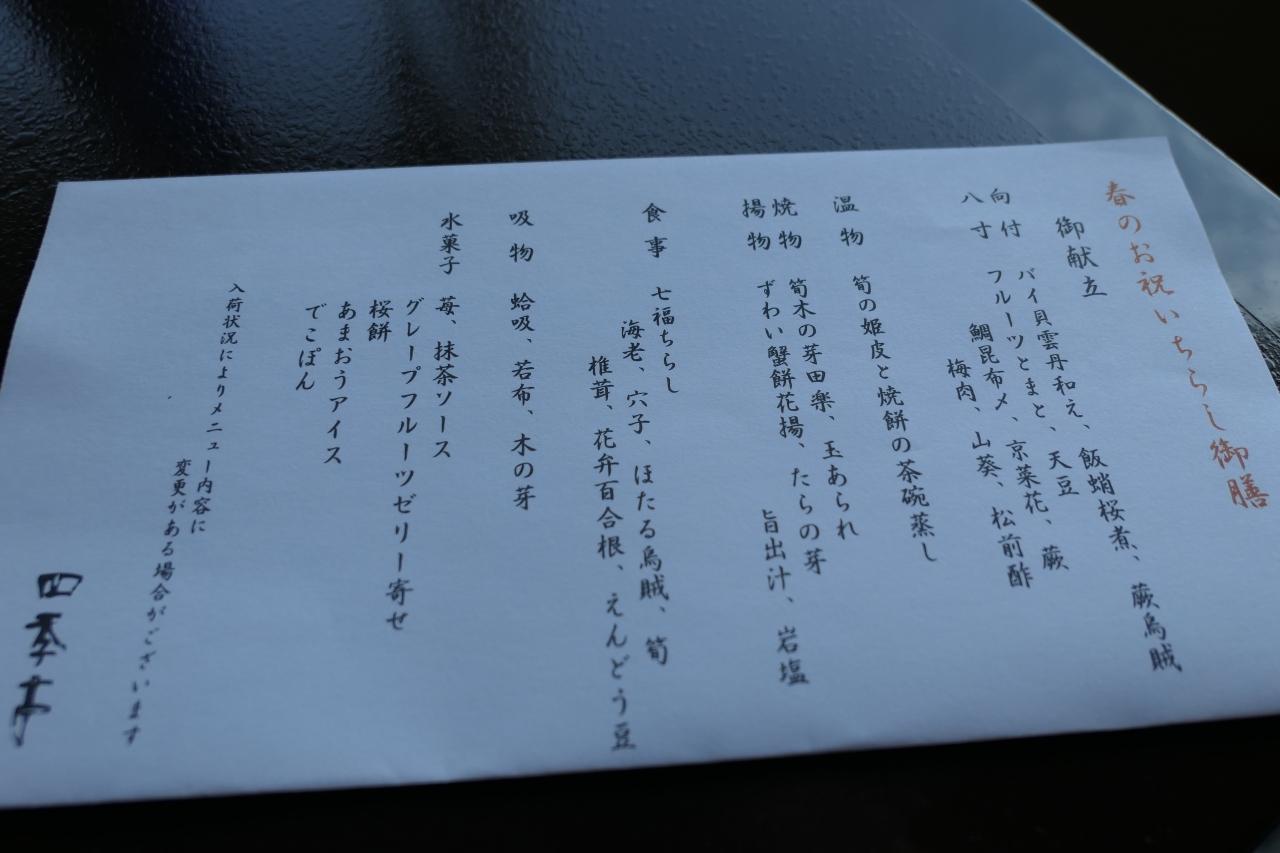 春のお祝いちらし御膳
御献立
向付 バイ貝雲丹和え、飯蛸桜煮、蕨烏賊
フルーツとまと、天豆
八寸 鯛昆布〆、京菜花、蕨
梅肉、山葵、松前酢
温物 筍の姫皮と焼餅の茶碗蒸し
焼物 筍木の芽田楽、玉あられ
揚物 ずわい蟹餅花揚、たらの芽
旨出汁、岩塩
食事 七福ちらし
海老、穴子、ほたる烏賊、筍
椎茸、花弁百合根、えんどう豆
吸物 蛤吸、若布、木の芽
水菓子 苺、抹茶ソース
グレープフルーツゼリー寄せ
桜餅
あまおうアイス
でこぽん
入荷状況によりメニュー内容に
変更がある場合がございます
四季亭